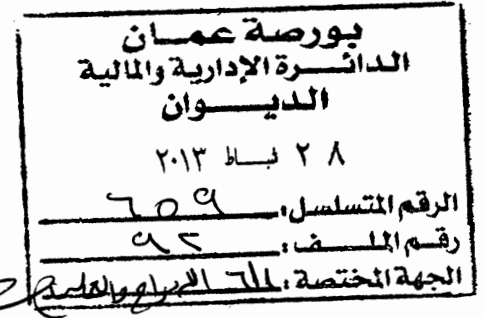 بورصة عمان
الدائرة الإدارية والمالية
الديوان
٢٨ شباط ٢٠١٣
الرقم المتسلسل: ٦٥٩
رقم الملف: ٩٢
الجهة المختصة: